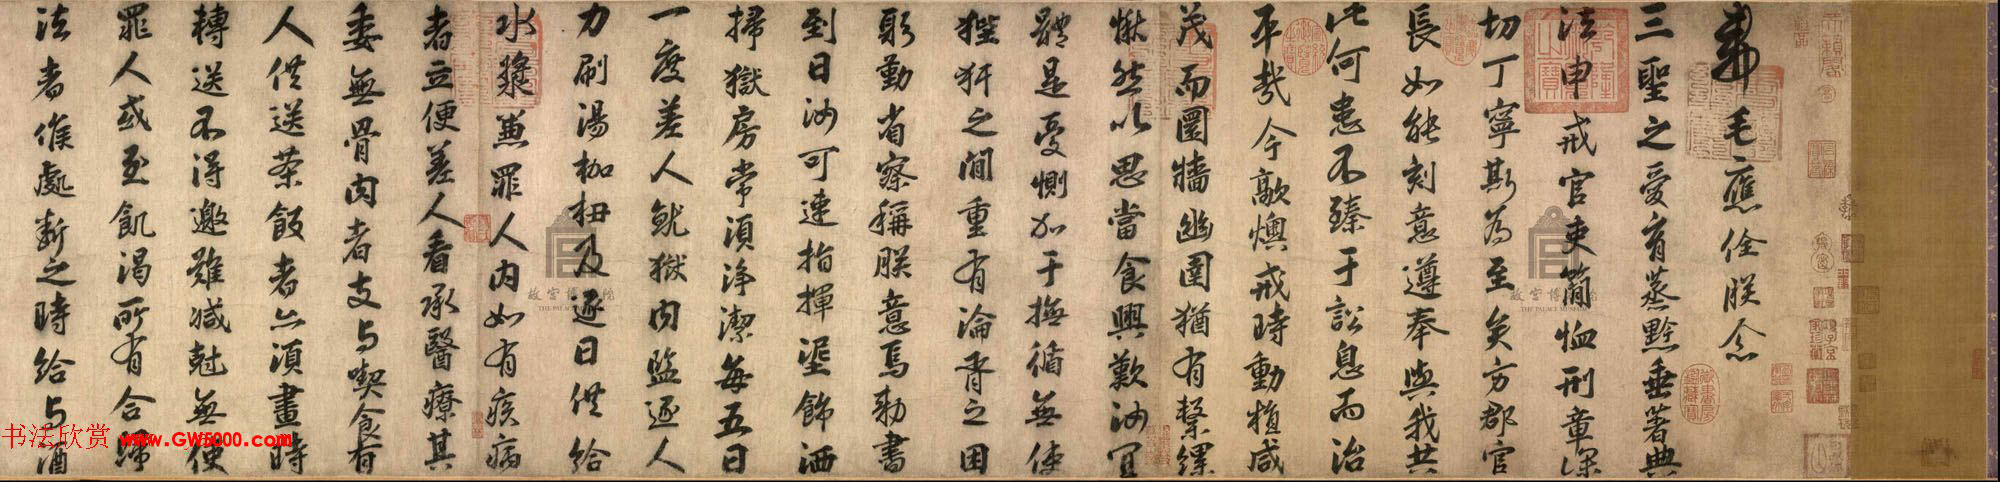 敕毛應佺朕念
三聖之愛育蒸黔垂著典
法申戒官吏簡恤刑章深
切丁寧斯為至矣方郡官
長如能刻意遵奉與我共
此何患不臻于訟息而治
平哉今歊燠戒時動植咸
茂而圜牆幽圄猶有繫縲
愀然以思當食興歎汝宜
體是憂惻加于撫循無使
狴犴之間重有淪胥之困
躬勤省察稱朕意焉勑書
到日汝可速指揮渥飾洒
掃獄房常須淨潔每五日
一度差人就獄內監逐人
力刷湯枷杻及逐日供給
水漿兼罪人內如有疾病
者立便差人看承醫療其
委無骨肉者支与喫食有
人供送茶飯者亦須畫時
轉送不得邀難減尅無使
罪人或至飢渴所有合歸
法者候處斷之時給与酒
故宮博物院
THE PALACE MUSEUM
故宮博物院
THE PALACE MUSEUM
书法欣赏 www.GW5000.com